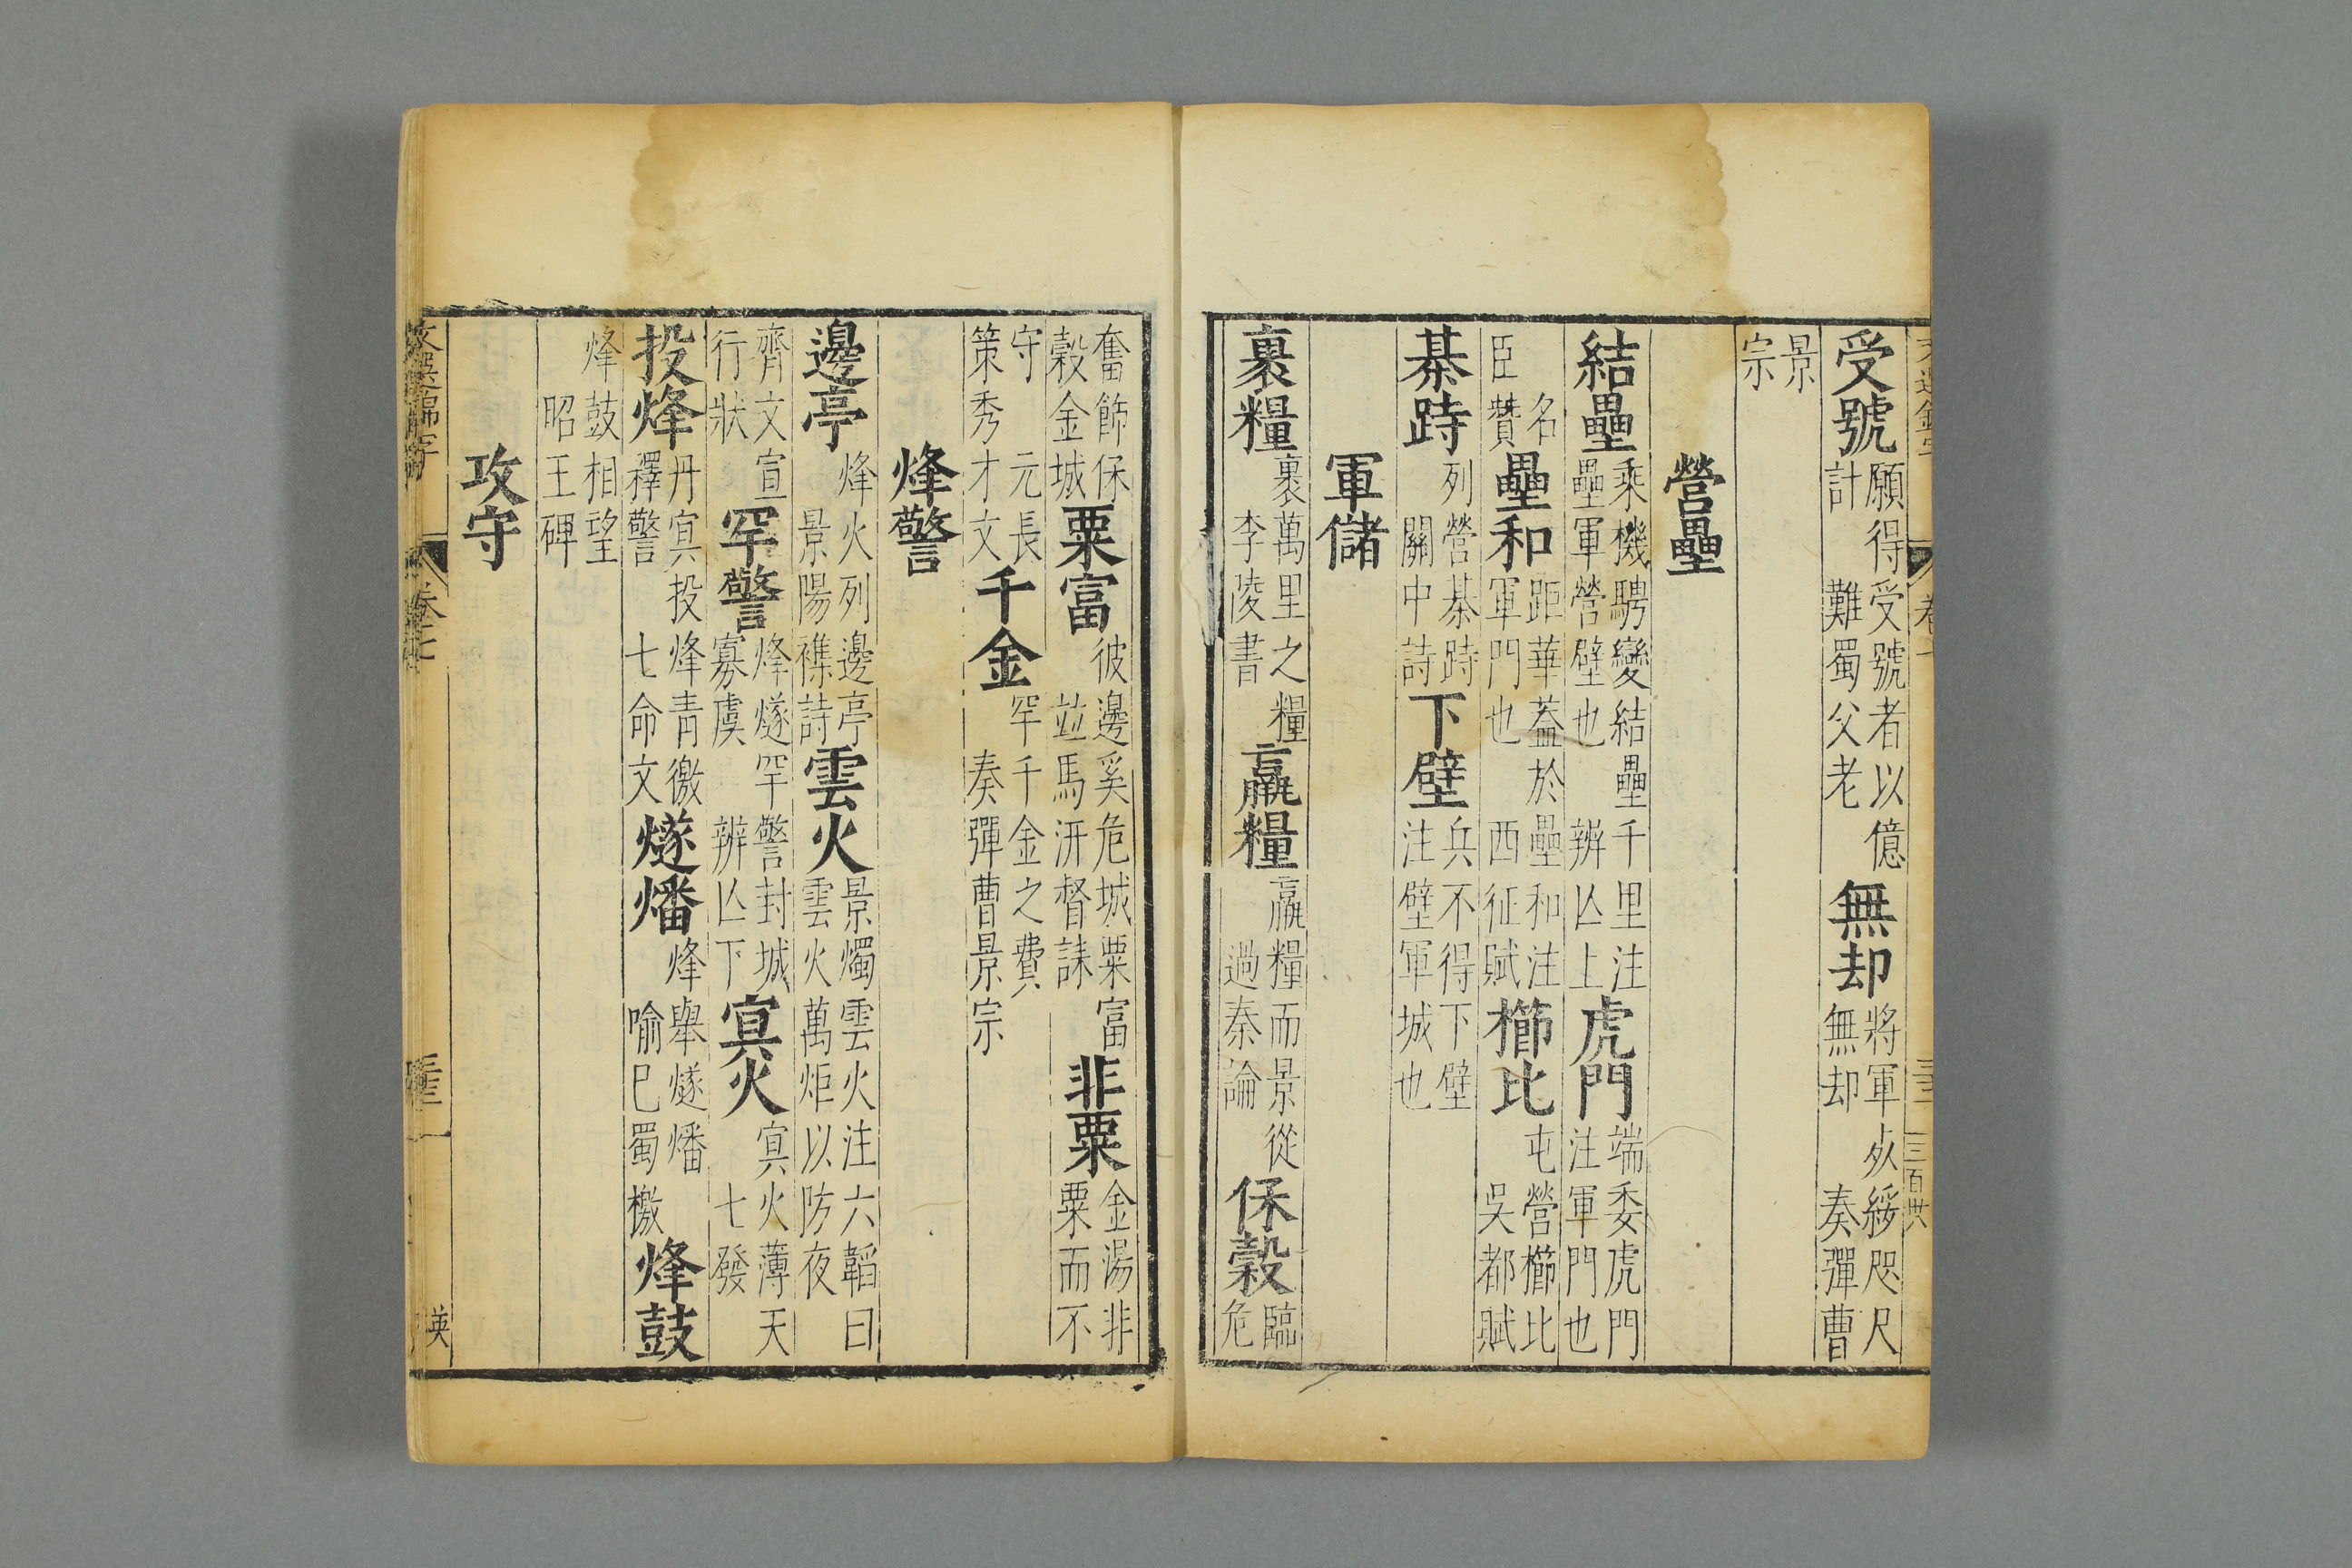 受號願得受號者以億計難蜀父老無却將軍死綏咫尺無却奏彈曹
景宗
營壘
結壘乘機騁變結壘千里注壘軍營壁也辨亾上虎門端委虎門注軍門也
名臣贊壘和距華蓋於壘和注軍門也西征賦櫛比屯營櫛比吳都賦
棊跱列營棊跱關中詩下壁兵不得下壁注壁軍城也
軍儲
裹糧裹萬里之糧李陵書贏糧贏糧而景從過秦論保穀臨危
奮節保穀金城粟富彼邊奚危城粟富竝馬汧督誄非粟金湯非粟而不
守元長策秀才文千金罕千金之費奏彈曹景宗
烽警
邊亭烽火列邊亭景陽襍詩雲火景燭雲火注六韜曰雲火萬炬以防夜
齊文宣行狀罕警烽燧罕警封城寡虞辨亾下冥火冥火薄天七發
投烽丹冥投烽青徼釋警七命文燧燔烽舉燧燔喻巴蜀檄烽鼓
烽鼓相望昭王碑
攻守
文選錦字 卷七